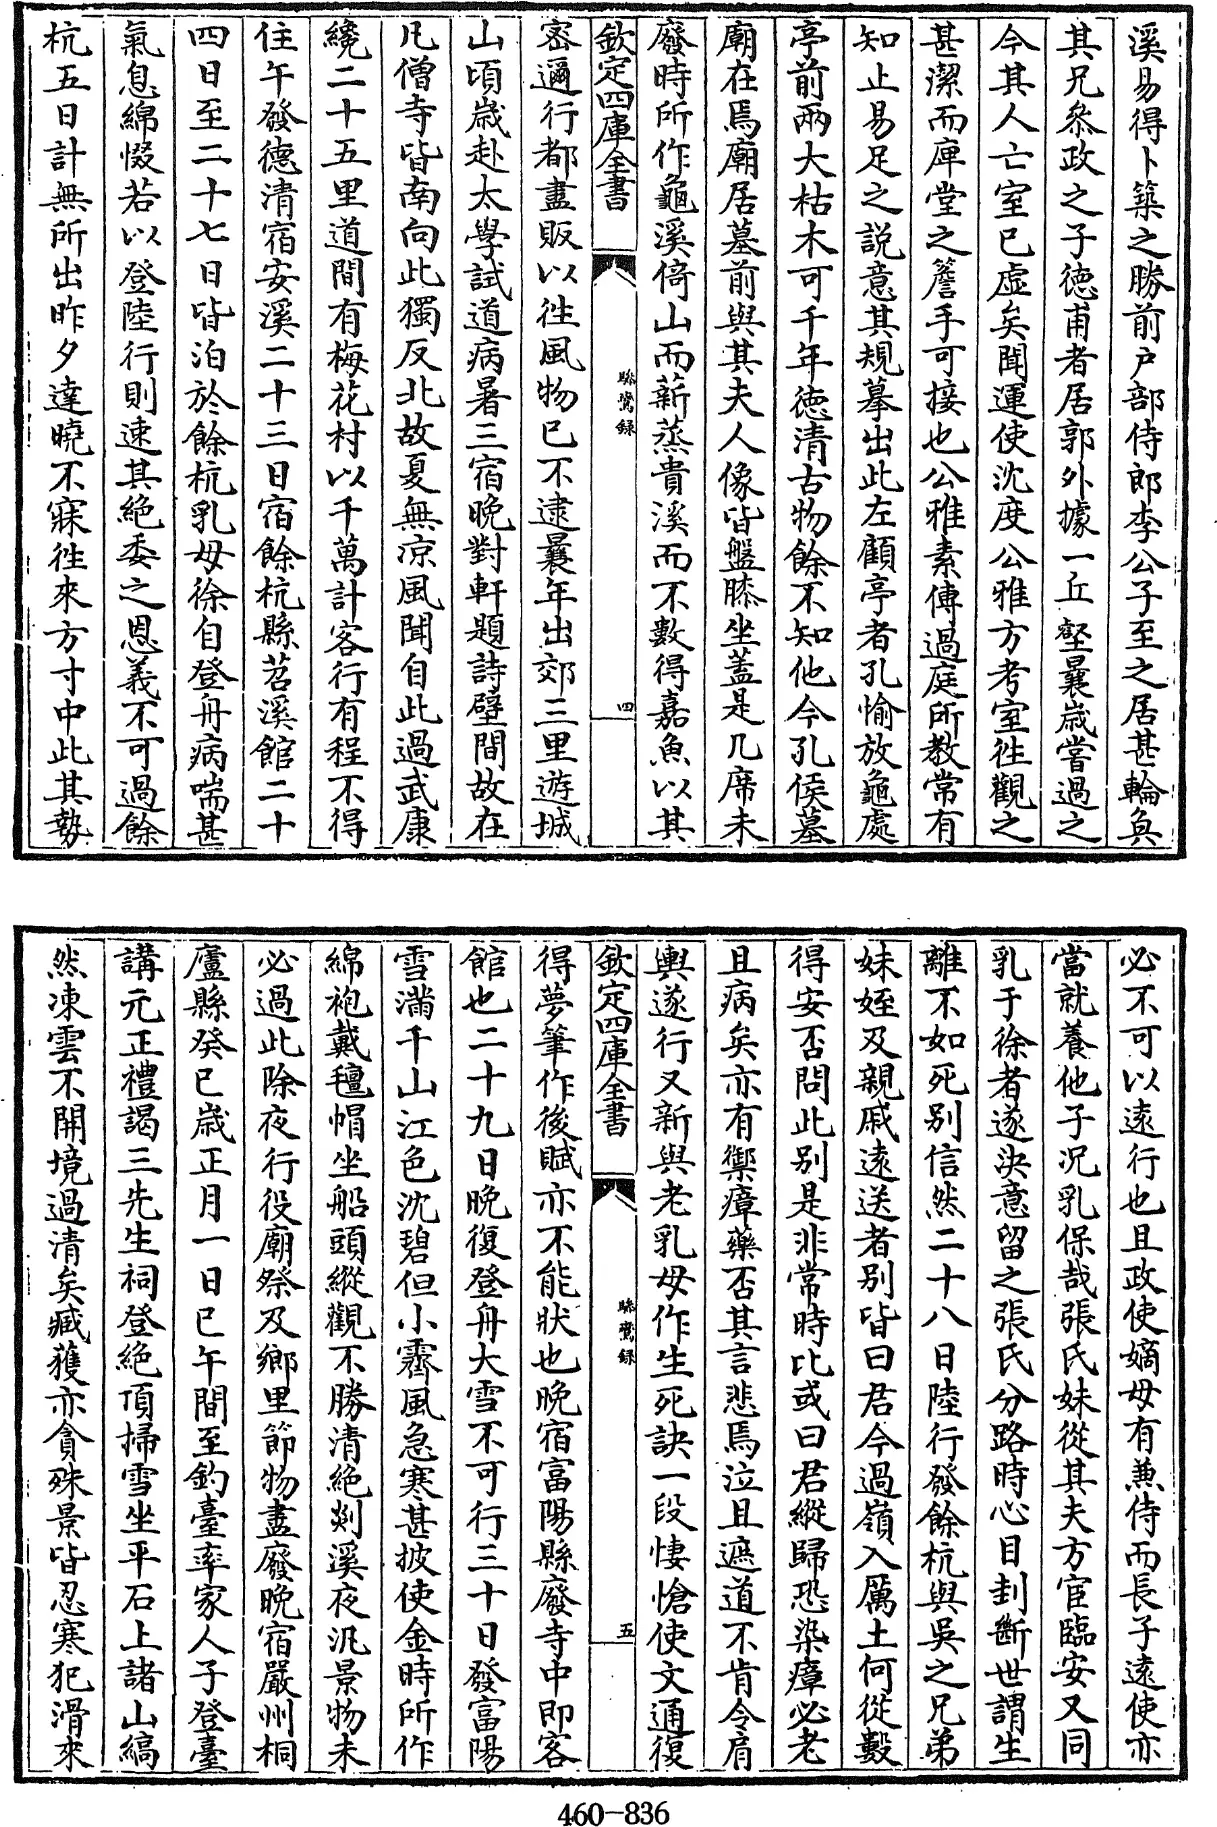 溪易得卜築之勝前户部侍郎李公子至之居甚輪奐
其兄叅政之子徳甫者居郭外據一丘壑曩歳嘗過之
今其人亡室已虚矣聞運使沈度公雅方考室徃觀之
甚潔而庳堂之簷手可接也公雅素傳過庭所教常有
知止易足之説意其規摹出此左顧亭者孔愉放龜處
亭前兩大枯木可千年徳清古物餘不知他今孔侯墓
廟在焉廟居墓前與其夫人像皆盤膝坐蓋是几席未
廢時所作龜溪倚山而薪蒸貴溪而不數得嘉魚以其
欽定四庫全書
驂鸞録
四
密邇行都盡販以徃風物已不逮曩年出郊三里遊城
山頃歳赴太學試道病暑三宿晩對軒題詩壁間故在
凡僧寺皆南向此獨反北故夏無凉風聞自此過武康
纔二十五里道間有梅花村以千萬計客行有程不得
住午發德清宿安溪二十三日宿餘杭縣苕溪館二十
四日至二十七日皆泊於餘杭乳母徐自登舟病喘甚
氣息綿惙若以登陸行則速其絶委之恩義不可過餘
杭五日計無所出昨夕達曉不寐徃來方寸中此其勢
必不可以逺行也且政使嫡母有兼侍而長子逺使亦
當就養他子况乳保哉張氏妹從其夫方宦臨安又同
乳于徐者遂決意留之張氏分路時心目刲斷世謂生
離不如死别信然二十八日陸行發餘杭與吳之兄弟
妹姪及親戚逺送者别皆曰君今過嶺入厲土何從數
得安否問此别是非常時比或曰君縱歸恐染瘴必老
且病矣亦有禦瘴藥否其言悲焉泣且遮道不肯令肩
輿遂行又新與老乳母作生死訣一段悽愴使文通復
欽定四庫全書
驂鸞録
五
得夢筆作後賦亦不能狀也晩宿富陽縣廢寺中即客
館也二十九日晩復登舟大雪不可行三十日發富陽
雪滿千山江色沈碧但小霽風急寒甚披使金時所作
綿袍戴氊帽坐船頭縱觀不勝清絶剡溪夜汎景物未
必過此除夜行役廟祭及鄉里節物盡廢晩宿嚴州桐
廬縣癸巳歳正月一日巳午間至釣臺率家人子登臺
講元正禮謁三先生祠登絶頂掃雪坐平石上諸山縞
然凍雲不開境過清矣臧獲亦貪殊景皆忍寒犯滑來
460-836